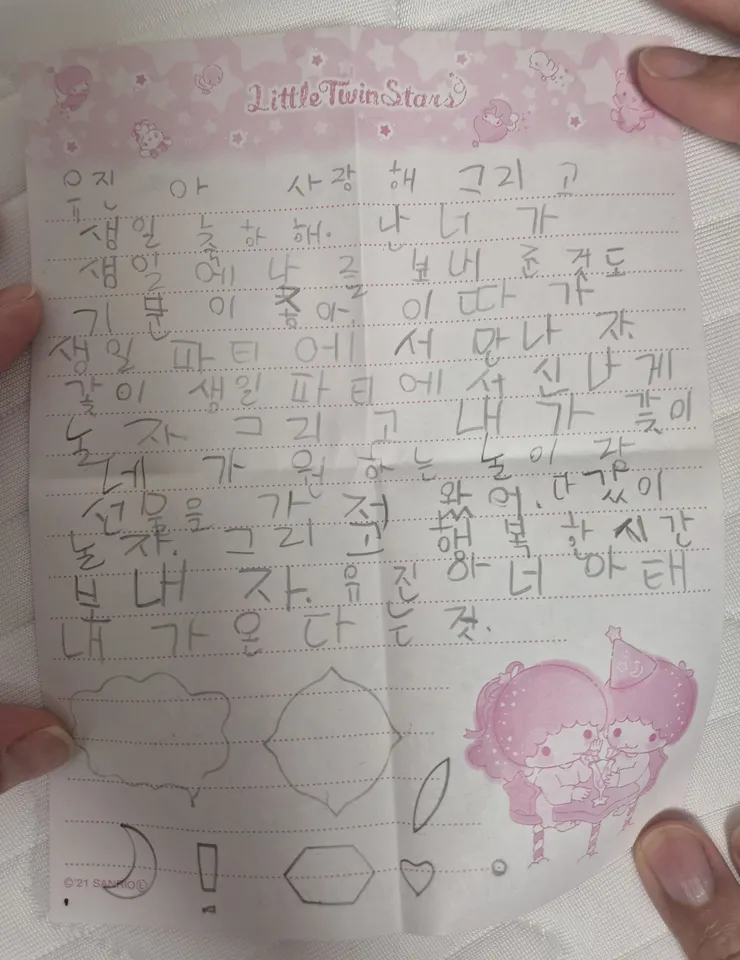 LittleTwinStars
유진 아 사랑 해 그리 고
생일 축 하 해. 난 너 가
생일 에 나 를 보내 준 것도
기 분 이 좋아. 이 따 가
생일 파 티 에 서 만 나 자.
같이 생일 파 티 에 서 신 나 게
놀 자 그 리 고 내 가 같이
네 가 원 하 는 놀 이 랑
선물을 가 저 왔 어. 다 같이
놀 자. 그 리 고 해 복 한 시 간
보 내 자. 유 진 아 너 아 태
내 가 온 다 는 것.
©'21 SANRIO Ⓛ